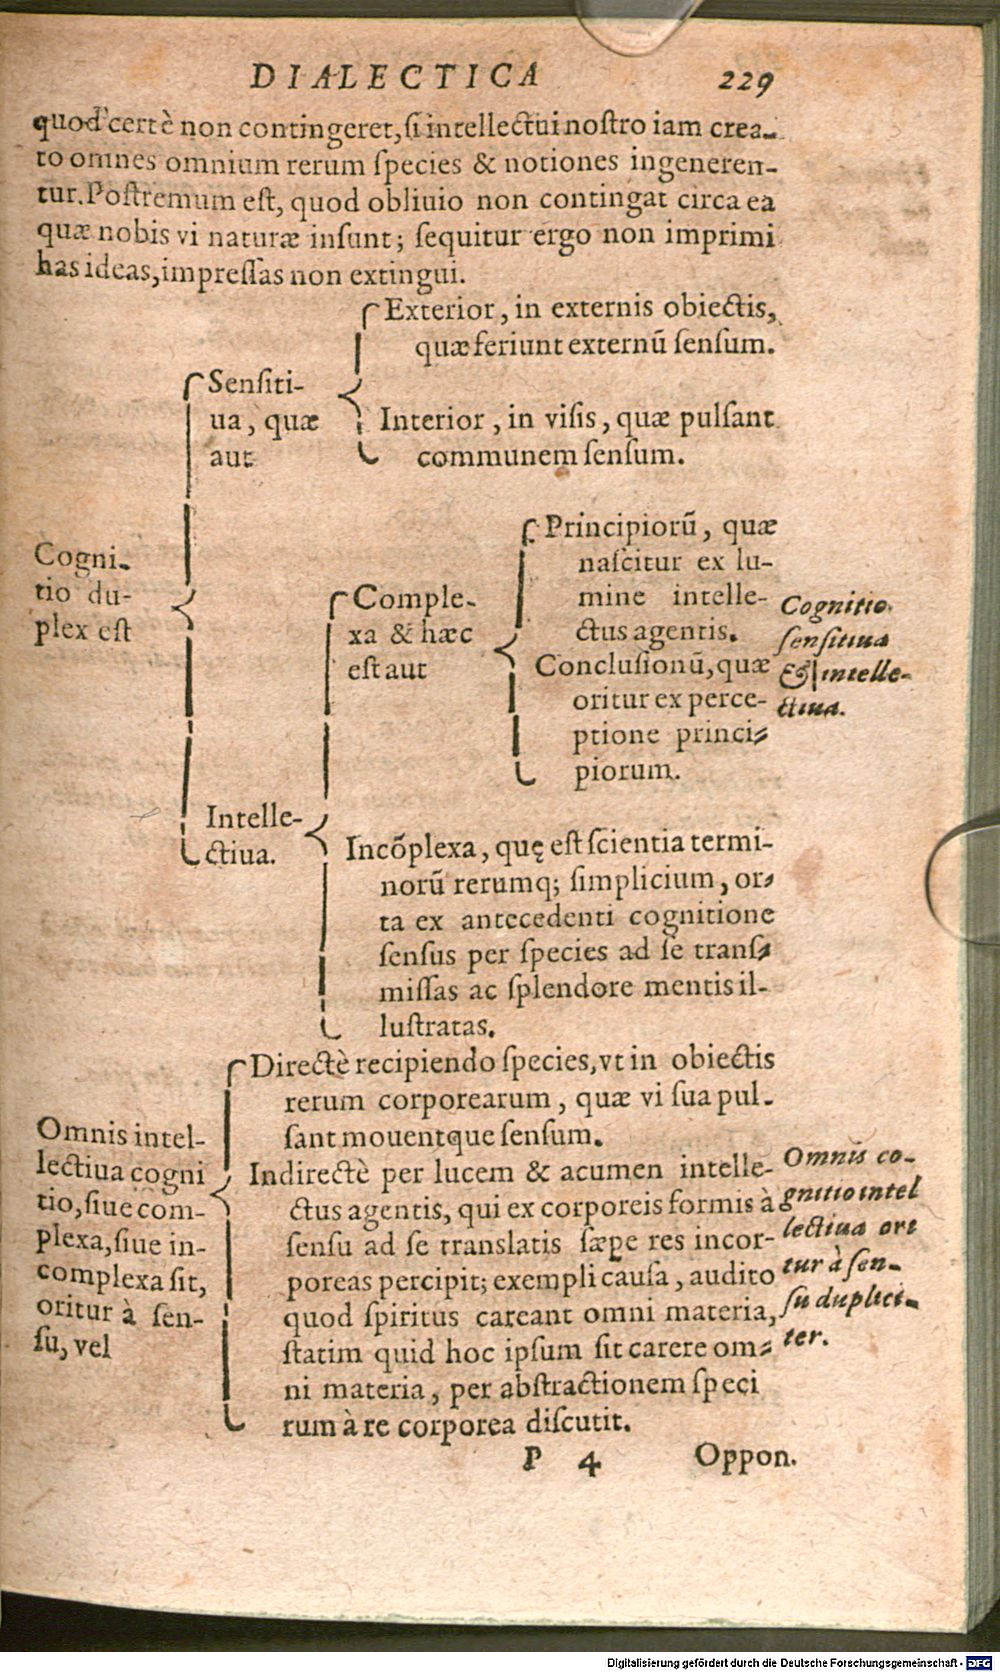 DIALECTICA 229
quod certè non contingeret, si intellectui nostro iam crea-
to omnes omnium rerum species & notiones ingeneren-
tur. Postremum est, quod obliuio non contingat circa ea
quæ nobis vi naturæ insunt; sequitur ergo non imprimi
has ideas, impressas non extingui.
Cogni-
tio du-
plex est
Sensiti-
ua, quæ
aut
Exterior, in externis obiectis,
quæ feriunt externū sensum.
Interior, in visis, quæ pulsant
communem sensum.
Intelle-
ctiua.
Comple-
xa & hæc
est aut
Principiorū, quæ
nascitur ex lu-
mine intelle-
ctus agentis.
Conclusionū, quæ
oritur ex perce-
ptione princi-
piorum.
Incōplexa, quę est scientia termi-
norū rerumq; simplicium, or-
ta ex antecedenti cognitione
sensus per species ad se trans-
missas ac splendore mentis il-
lustratas.
Cognitio
sensitiua
& intelle-
ctiua.
Omnis intel-
lectiua cogni
tio, siue com-
plexa, siue in-
complexa sit,
oritur à sen-
su, vel
Directè recipiendo species, vt in obiectis
rerum corporearum, quæ vi sua pul-
sant mouentque sensum.
Indirectè per lucem & acumen intelle-
ctus agentis, qui ex corporeis formis à
sensu ad se translatis sæpe res incor-
poreas percipit; exempli causa, audito
quod spiritus careant omni materia,
statim quid hoc ipsum sit carere om-
ni materia, per abstractionem speci
rum à re corporea discutit.
Omnis co-
gnitio intel
lectiua ori
tur à sen-
su duplici-
ter.
P 4 Oppon.
Digitalisierung gefördert durch die Deutsche Forschungsgemeinschaft - DFG